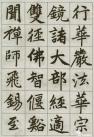 行華嚴法華宗
鏡諸大部經
雙徑佛智偃谿
聞禪師飛錫至